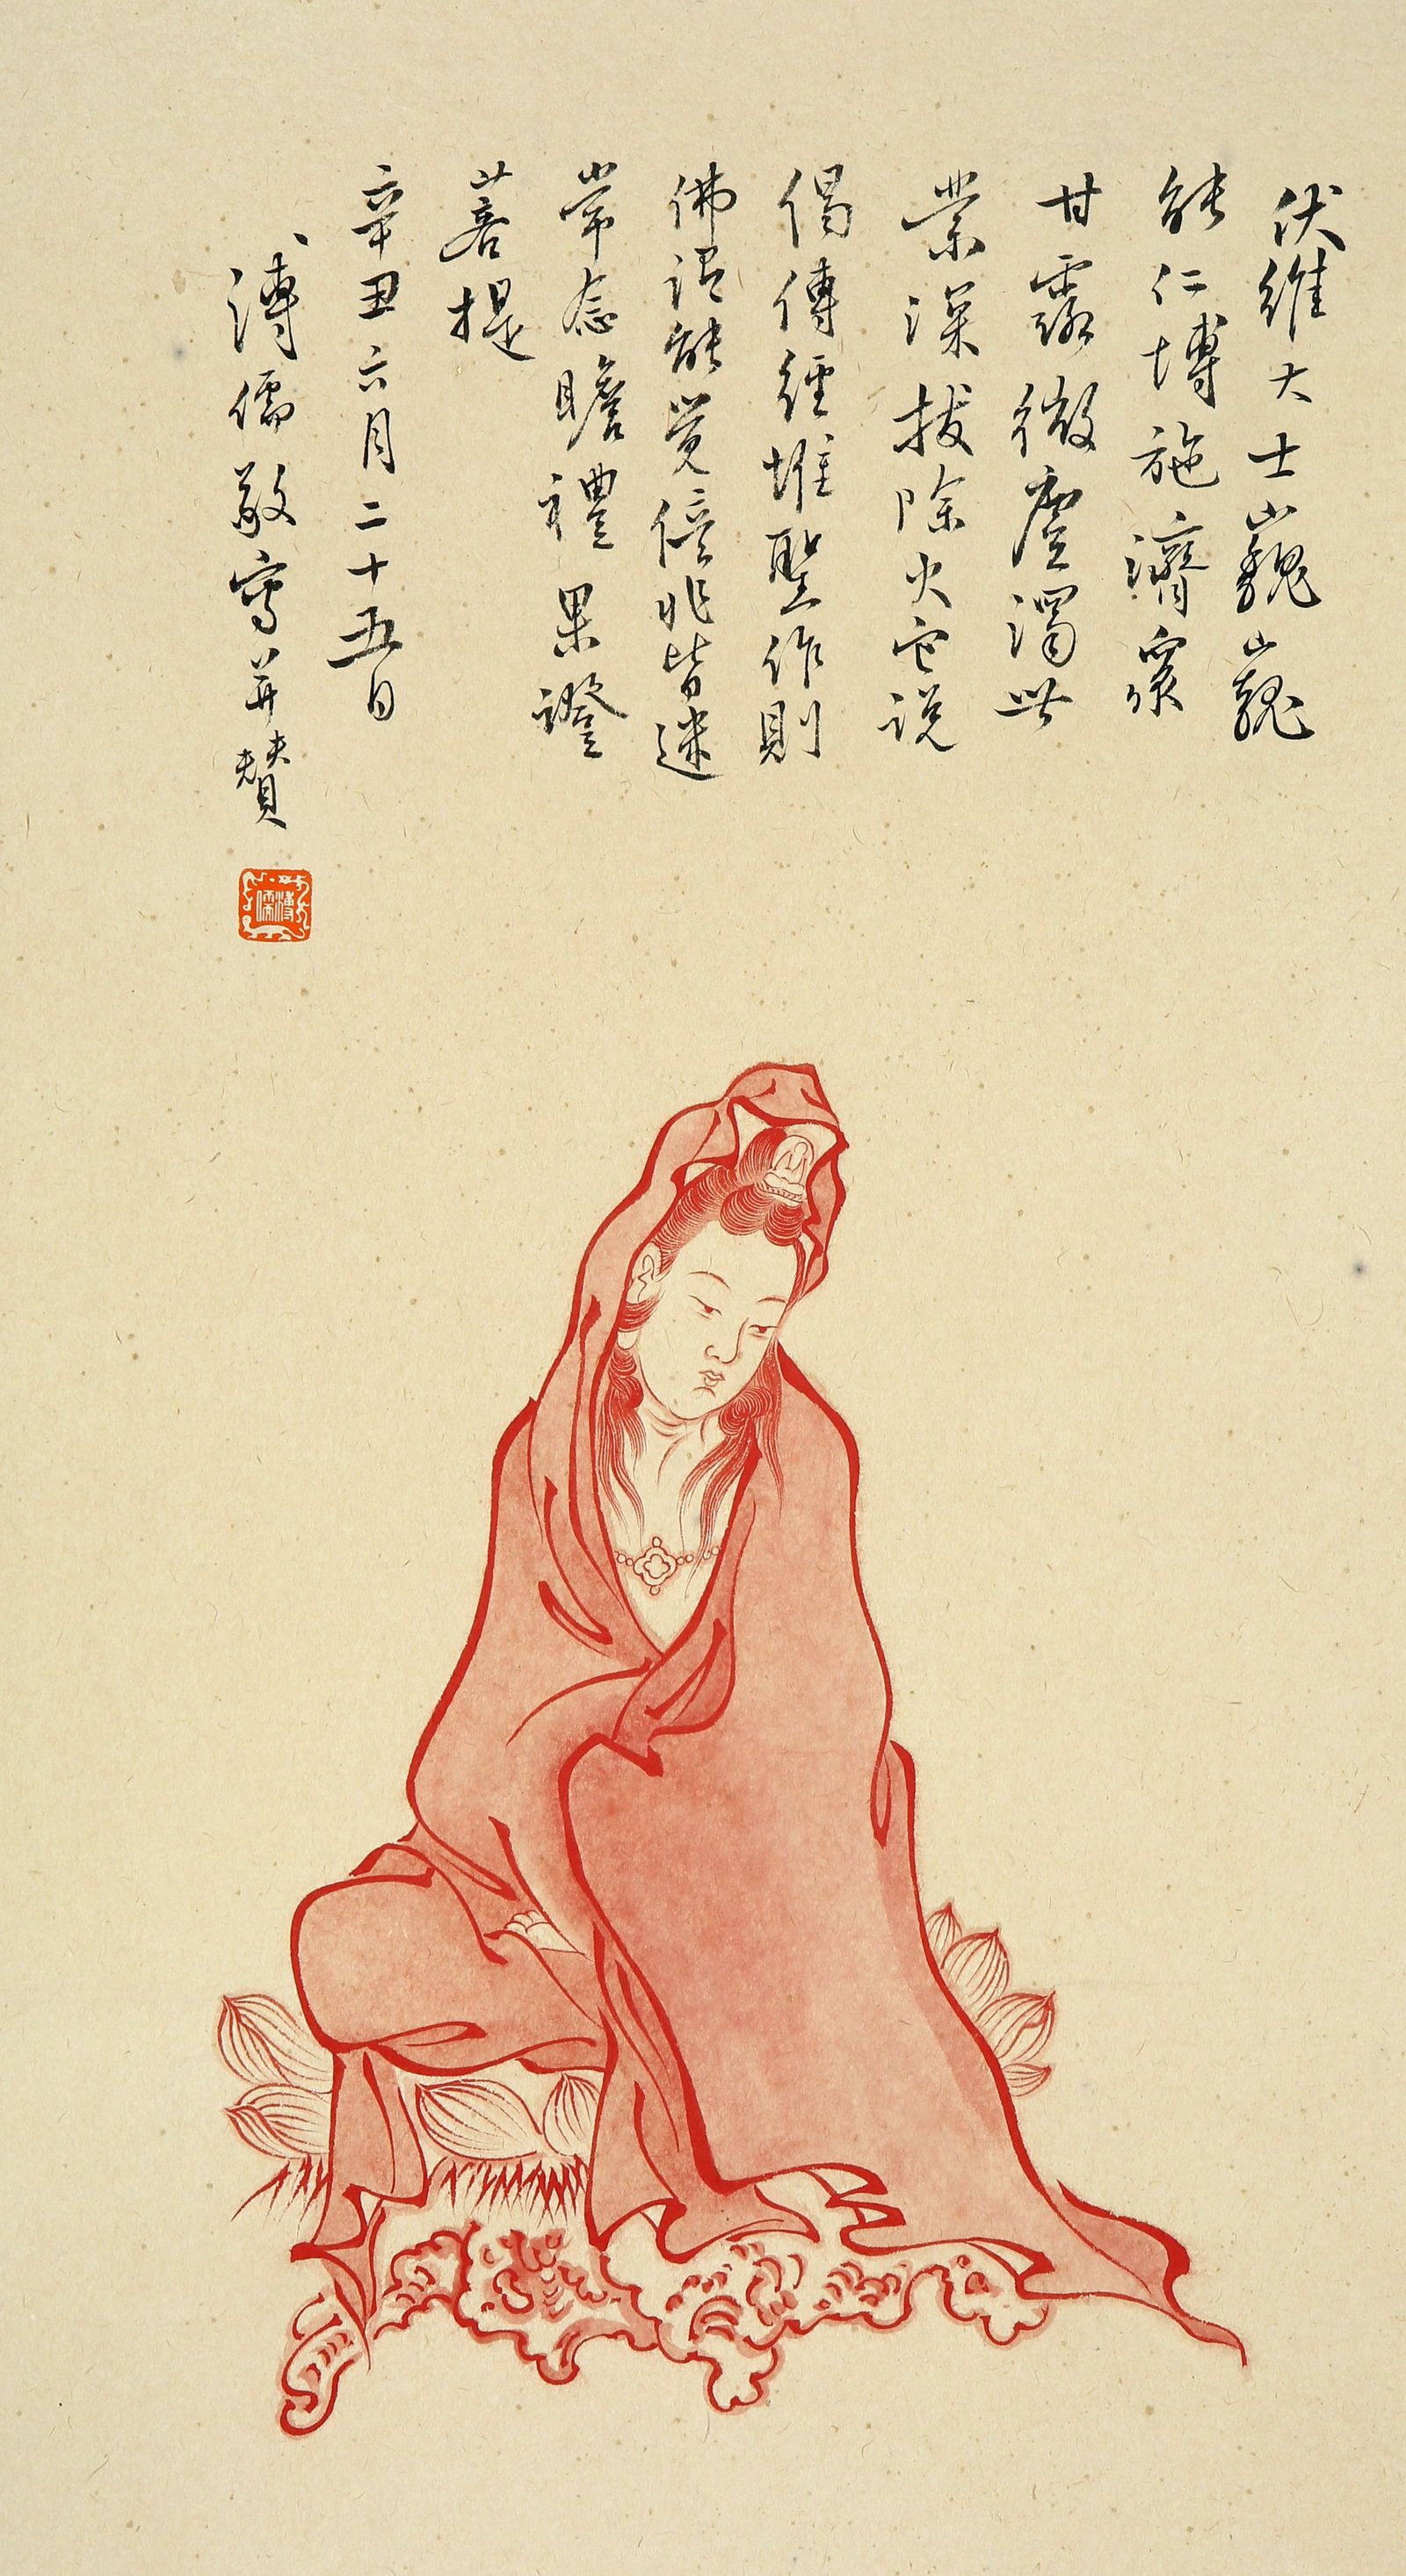 伏維大士巍巍
能仁博施濟眾
甘露微塵濁世
業深拔除火宅說
偈傳經堆聖作則
佛語能覺信非皆迷
常念瞻禮果證
菩提
辛丑六月二十五日
溥儒敬寫并贊
溥儒